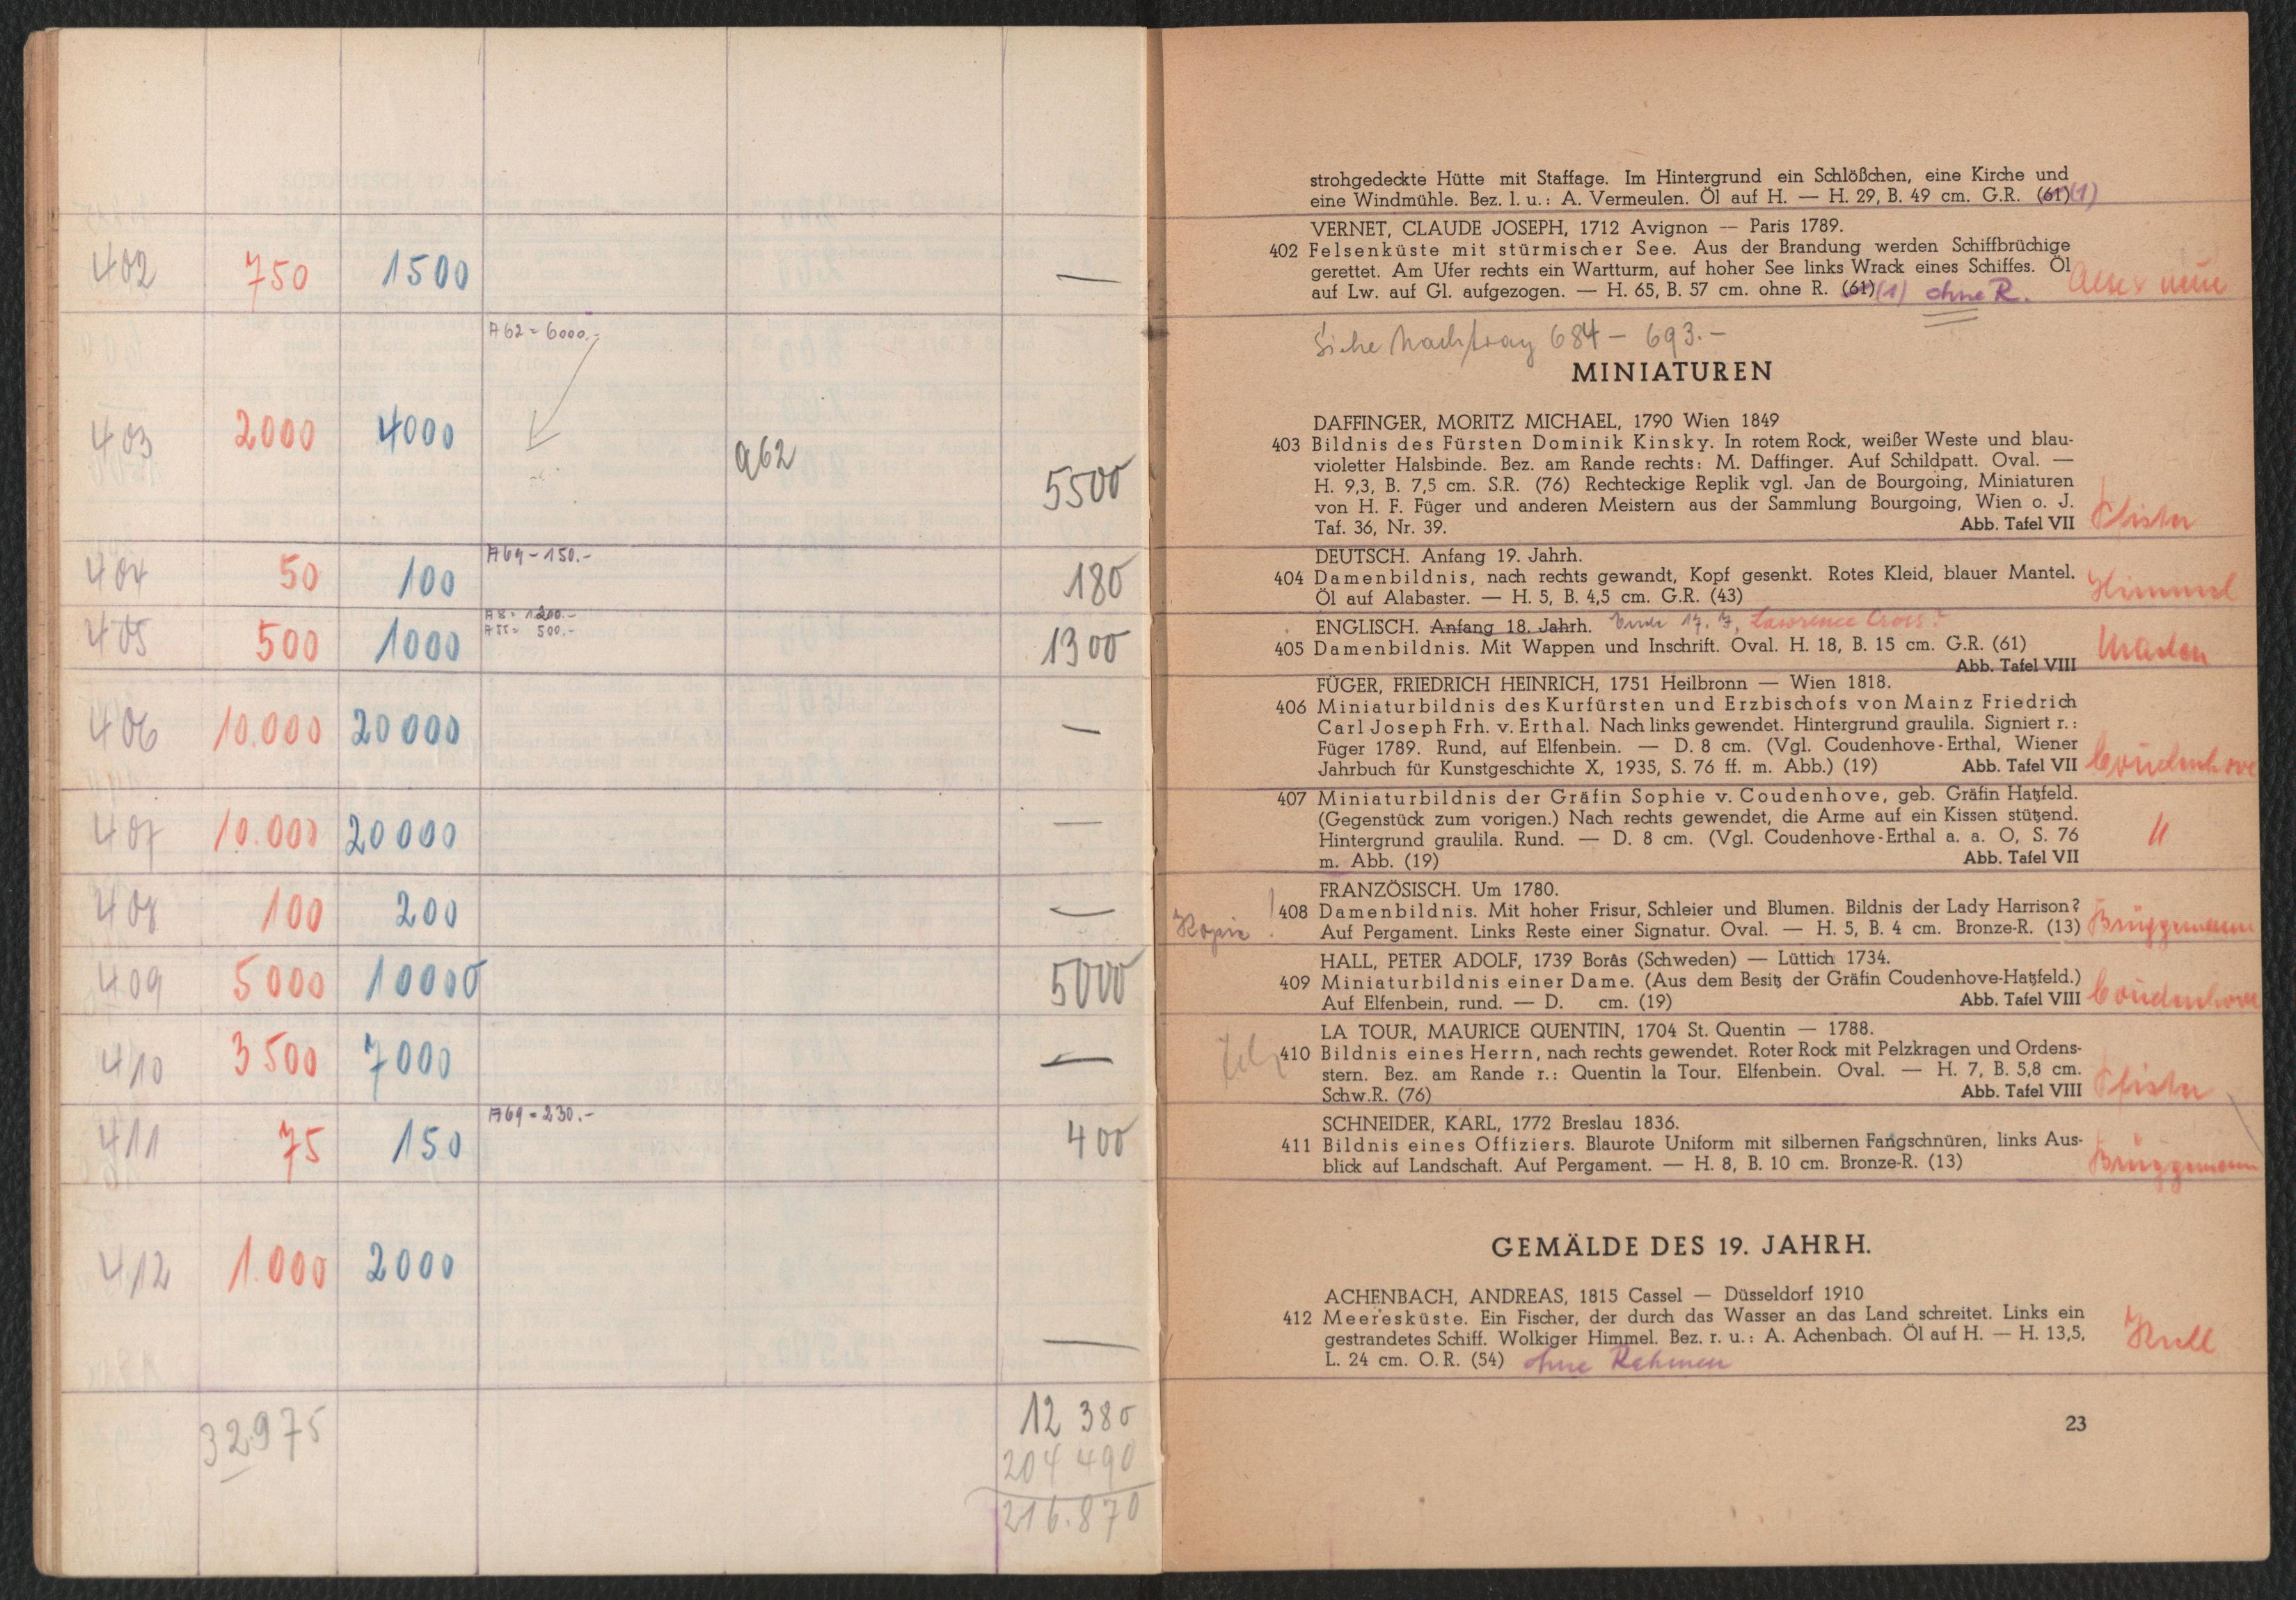 402 750 1500 —
A62 = 6000.-
403 2000 4000 a62 5500
A69 - 150.-
404 50 100 180
A8 = 1200.-
A55 = 500.-
405 500 1000 1300
406 10.000 20000 —
407 10.000 20000 —
408 100 200 —
409 5000 10000 5000
410 3500 7000 —
A69 = 230.-
411 75 150 400
412 1.000 2000 —
32975 12 380
204 490
216.870
strohgedeckte Hütte mit Staffage. Im Hintergrund ein Schlößchen, eine Kirche und
eine Windmühle. Bez. l. u.: A. Vermeulen. Öl auf H. — H. 29, B. 49 cm. G.R. (61) (1)
VERNET, CLAUDE JOSEPH, 1712 Avignon — Paris 1789.
402 Felsenküste mit stürmischer See. Aus der Brandung werden Schiffbrüchige
gerettet. Am Ufer rechts ein Wartturm, auf hoher See links Wrack eines Schiffes. Öl
auf Lw. auf Gl. aufgezogen. — H. 65, B. 57 cm. ohne R. (61) (1) ohne R.
Siehe Nachtrag 684 - 693.-
MINIATUREN
DAFFINGER, MORITZ MICHAEL, 1790 Wien 1849
403 Bildnis des Fürsten Dominik Kinsky. In rotem Rock, weißer Weste und blau-
violetter Halsbinde. Bez. am Rande rechts: M. Daffinger. Auf Schildpatt. Oval. —
H. 9,3, B. 7,5 cm. S.R. (76) Rechteckige Replik vgl. Jan de Bourgoing, Miniaturen
von H. F. Füger und anderen Meistern aus der Sammlung Bourgoing, Wien o. J.
Taf. 36, Nr. 39. Abb. Tafel VII Pfister
DEUTSCH. Anfang 19. Jahrh.
404 Damenbildnis, nach rechts gewandt, Kopf gesenkt. Rotes Kleid, blauer Mantel. Himmel
Öl auf Alabaster. — H. 5, B. 4,5 cm. G.R. (43)
ENGLISCH. Anfang 18. Jahrh. Ende 17. J. Lawrence Cross?
405 Damenbildnis. Mit Wappen und Inschrift. Oval. H. 18, B. 15 cm. G.R. (61)
Abb. Tafel VIII
FÜGER, FRIEDRICH HEINRICH, 1751 Heilbronn — Wien 1818.
406 Miniaturbildnis des Kurfürsten und Erzbischofs von Mainz Friedrich
Carl Joseph Frh. v. Erthal. Nach links gewendet. Hintergrund graulila. Signiert r.:
Füger 1789. Rund, auf Elfenbein. — D. 8 cm. (Vgl. Coudenhove-Erthal, Wiener
Jahrbuch für Kunstgeschichte X, 1935, S. 76 ff. m. Abb.) (19) Abb. Tafel VII Coudenhove
407 Miniaturbildnis der Gräfin Sophie v. Coudenhove, geb. Gräfin Hatzfeld.
(Gegenstück zum vorigen.) Nach rechts gewendet, die Arme auf ein Kissen stützend.
Hintergrund graulila. Rund. — D. 8 cm. (Vgl. Coudenhove-Erthal a. a. O, S. 76 "
m. Abb. (19) Abb. Tafel VII
FRANZÖSISCH. Um 1780.
! 408 Damenbildnis. Mit hoher Frisur, Schleier und Blumen. Bildnis der Lady Harrison?
Kopie Auf Pergament. Links Reste einer Signatur. Oval. — H. 5, B. 4 cm. Bronze-R. (13) Brüggemann
HALL, PETER ADOLF, 1739 Borås (Schweden) — Lüttich 1734.
409 Miniaturbildnis einer Dame. (Aus dem Besitz der Gräfin Coudenhove-Hatzfeld.)
Auf Elfenbein, rund. — D. cm. (19) Abb. Tafel VIII Coudenhove
LA TOUR, MAURICE QUENTIN, 1704 St. Quentin — 1788.
410 Bildnis eines Herrn, nach rechts gewendet. Roter Rock mit Pelzkragen und Ordens-
stern. Bez. am Rande r.: Quentin la Tour. Elfenbein. Oval. — H. 7, B. 5,8 cm.
Schw.R. (76) Abb. Tafel VIII Pfister
SCHNEIDER, KARL, 1772 Breslau 1836.
411 Bildnis eines Offiziers. Blaurote Uniform mit silbernen Fangschnüren, links Aus-
blick auf Landschaft. Auf Pergament. — H. 8, B. 10 cm. Bronze-R. (13) Brüggemann
GEMÄLDE DES 19. JAHRH.
ACHENBACH, ANDREAS, 1815 Cassel — Düsseldorf 1910
412 Meeresküste. Ein Fischer, der durch das Wasser an das Land schreitet. Links ein
gestrandetes Schiff. Wolkiger Himmel. Bez. r. u.: A. Achenbach. Öl auf H. — H. 13,5,
L. 24 cm. O.R. (54) ohne Rahmen
23